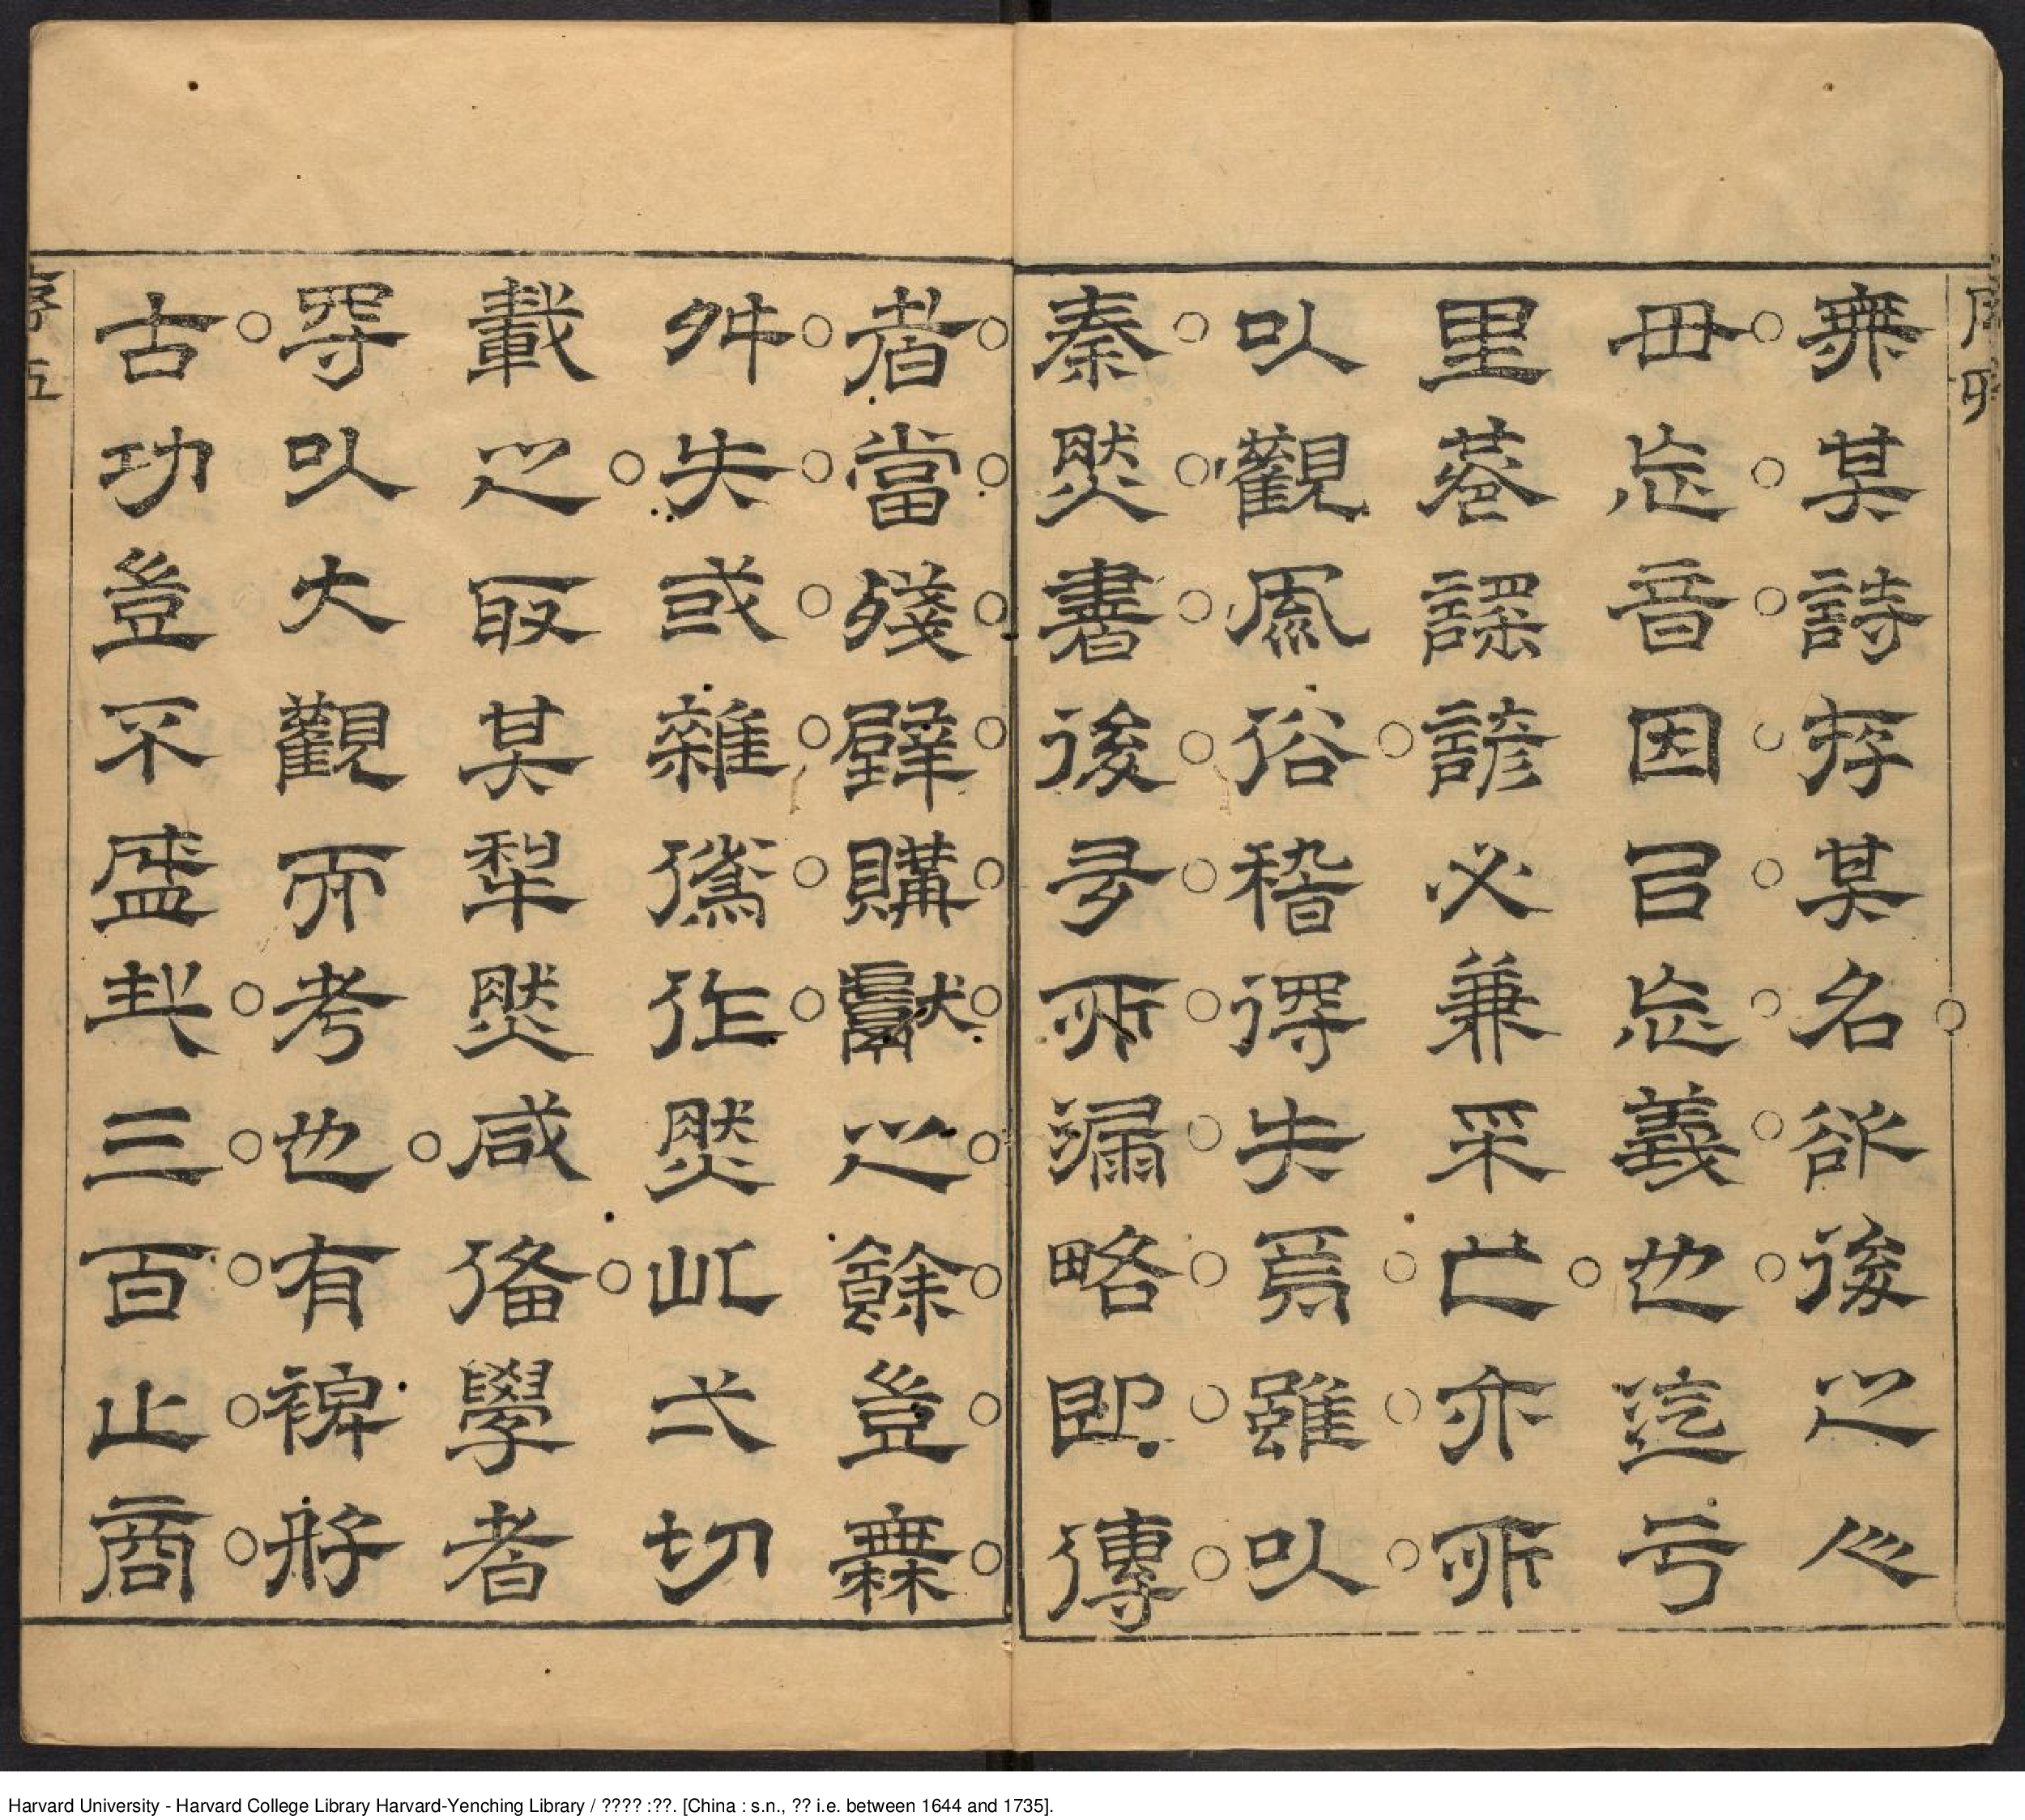 序四
無其詩存其名欲後之人
毋忘音因㠯忘義也迄亏
里巷謡諺必兼采亡亦所
以觀風俗稽得失焉雖以
秦然書後尋所漏略即傳
者當殘壁購獻之餘豈無
舛失或雜僞作然此弌切
載之取其犂然咸備學者
得以大觀而考也有裨於
古功豈不盛哉三百止商
序五
Harvard University - Harvard College Library Harvard-Yenching Library / ???? :??. [China : s.n., ?? i.e. between 1644 and 1735].